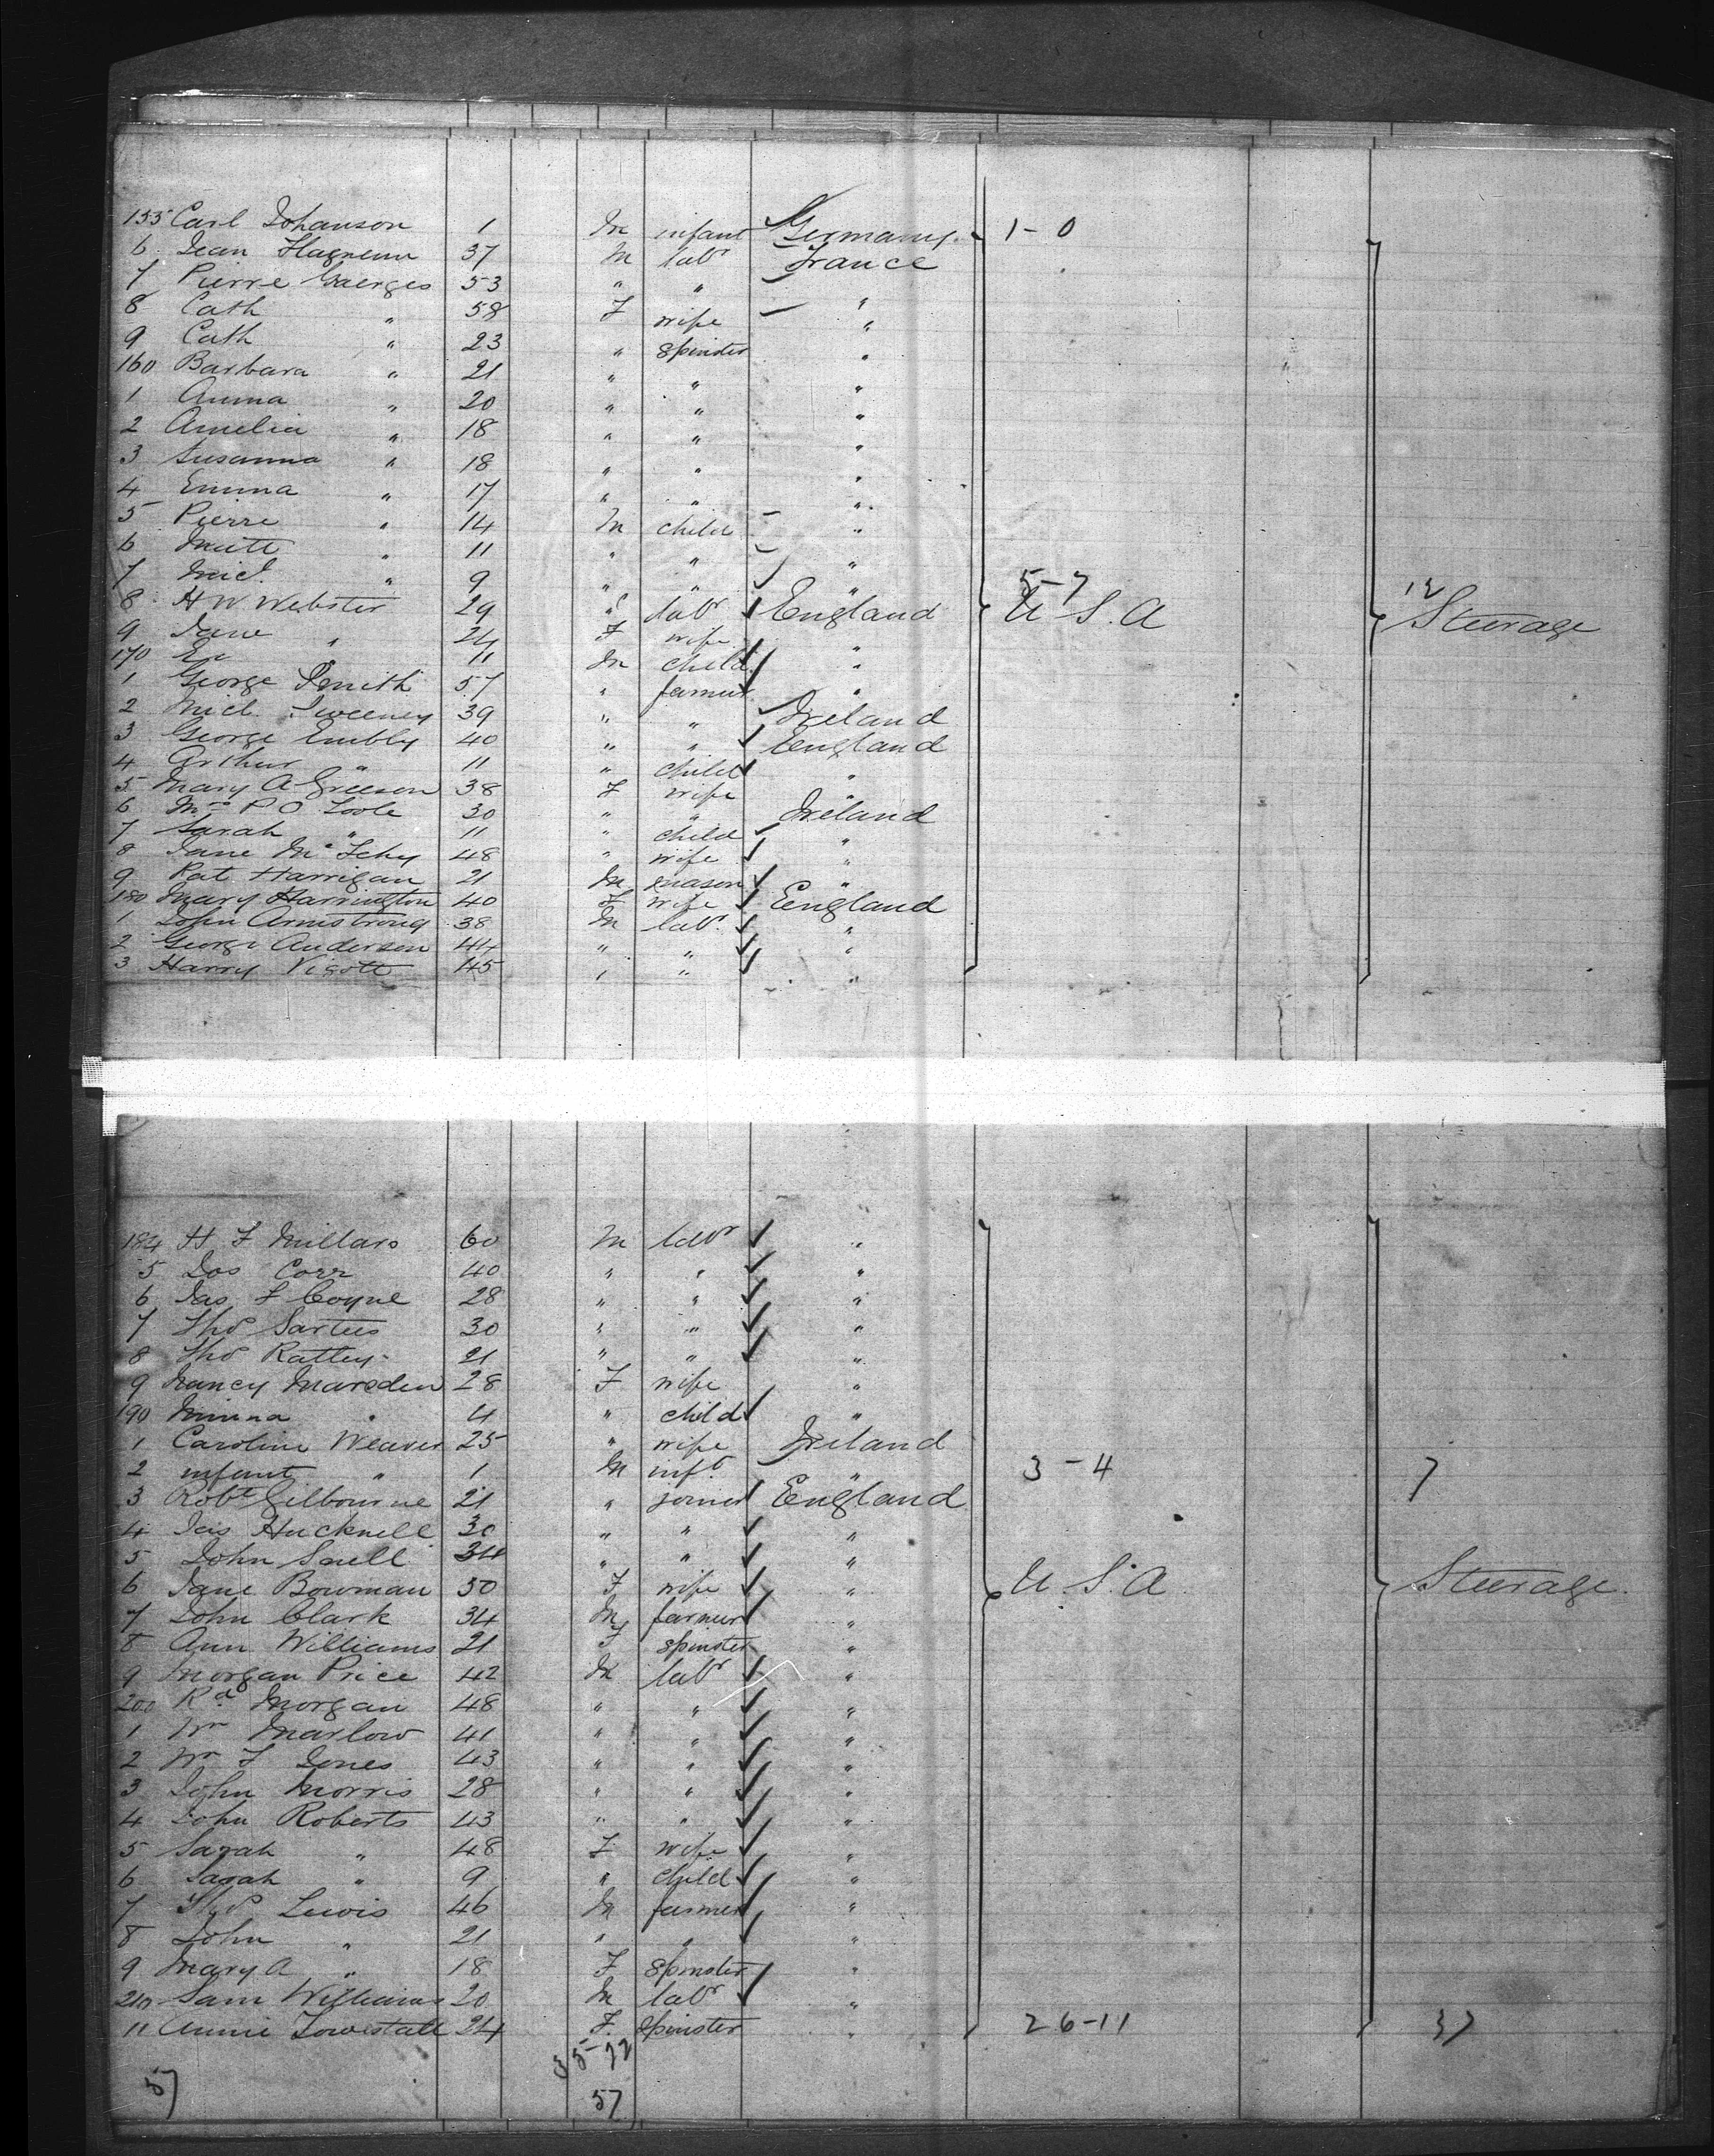 155 Carl Johanson 1 M infant Germany 1-0
6 Jean 37 M labr France
7 Pierre Gaerges 53 " "
8 Cath " 58 F wife "
9 Cath " 23 " Spinster "
160 Barbara " 21 " " "
1 Anna " 20 " " "
2 Amelia " 18 " " "
3 Susanna " 18 " " "
4 Emma " 17 " " "
5 Pierre " 14 M child "
6 " 11 " " "
7 Micl " 9 " " " 5-7 12
8 H W Webster 29 " labr England U.S.A Steerage
9 Jane " 24 F wife "
170 11 M child "
1 George Smith 57 " farmer "
2 Micl Sweeney 39 " " Ireland
3 George Embly 40 " " England
4 Arthur " 11 " child "
5 Mary A Greeson 38 F wife "
6 Mrs P O Toole 30 " " Ireland
7 Sarah " 11 " child "
8 Jane 48 " wife "
9 Pat Harrigan 21 M mason "
180 Mary Harrington 40 F wife England
1 John Armstrong 38 M labr "
2 George Anderson 44 " " "
3 Harry 45 " " "
184 H F Millars 60 M labr "
5 Jos Corr 40 " " "
6 Jas F Coyne 28 " " "
7 Thos 30 " " "
8 Thos Rattey 21 " " "
9 Nancy Marsden 28 F wife "
190 Minna " 4 " child "
1 Caroline Weaver 25 " wife Ireland
2 infant " 1 M inft " 3-4 7
3 Robt Gilbourne 21 " joiner England
4 Jas Hucknell 30 " " "
5 John Snell 34 " " "
6 Jane Bowman 50 F wife " U.S.A Steerage
7 John Clark 34 M farmer "
8 Ann Williams 21 F spinster "
9 Morgan Price 42 M labr "
200 Rd Morgan 48 " " "
1 Wm Marlow 41 " " "
2 Wm F Jones 43 " " "
3 John Morris 28 " " "
4 John Roberts 43 " " "
5 Sarah " 48 F wife "
6 Sarah " 9 " child "
7 Thos Lewis 46 M farmer "
8 John " 21 " " "
9 Mary A " 18 F Spinster "
210 Sam Williams 20 M labr "
11 Annie 24 F. Spinster " 26-11 37
35-22
57 57